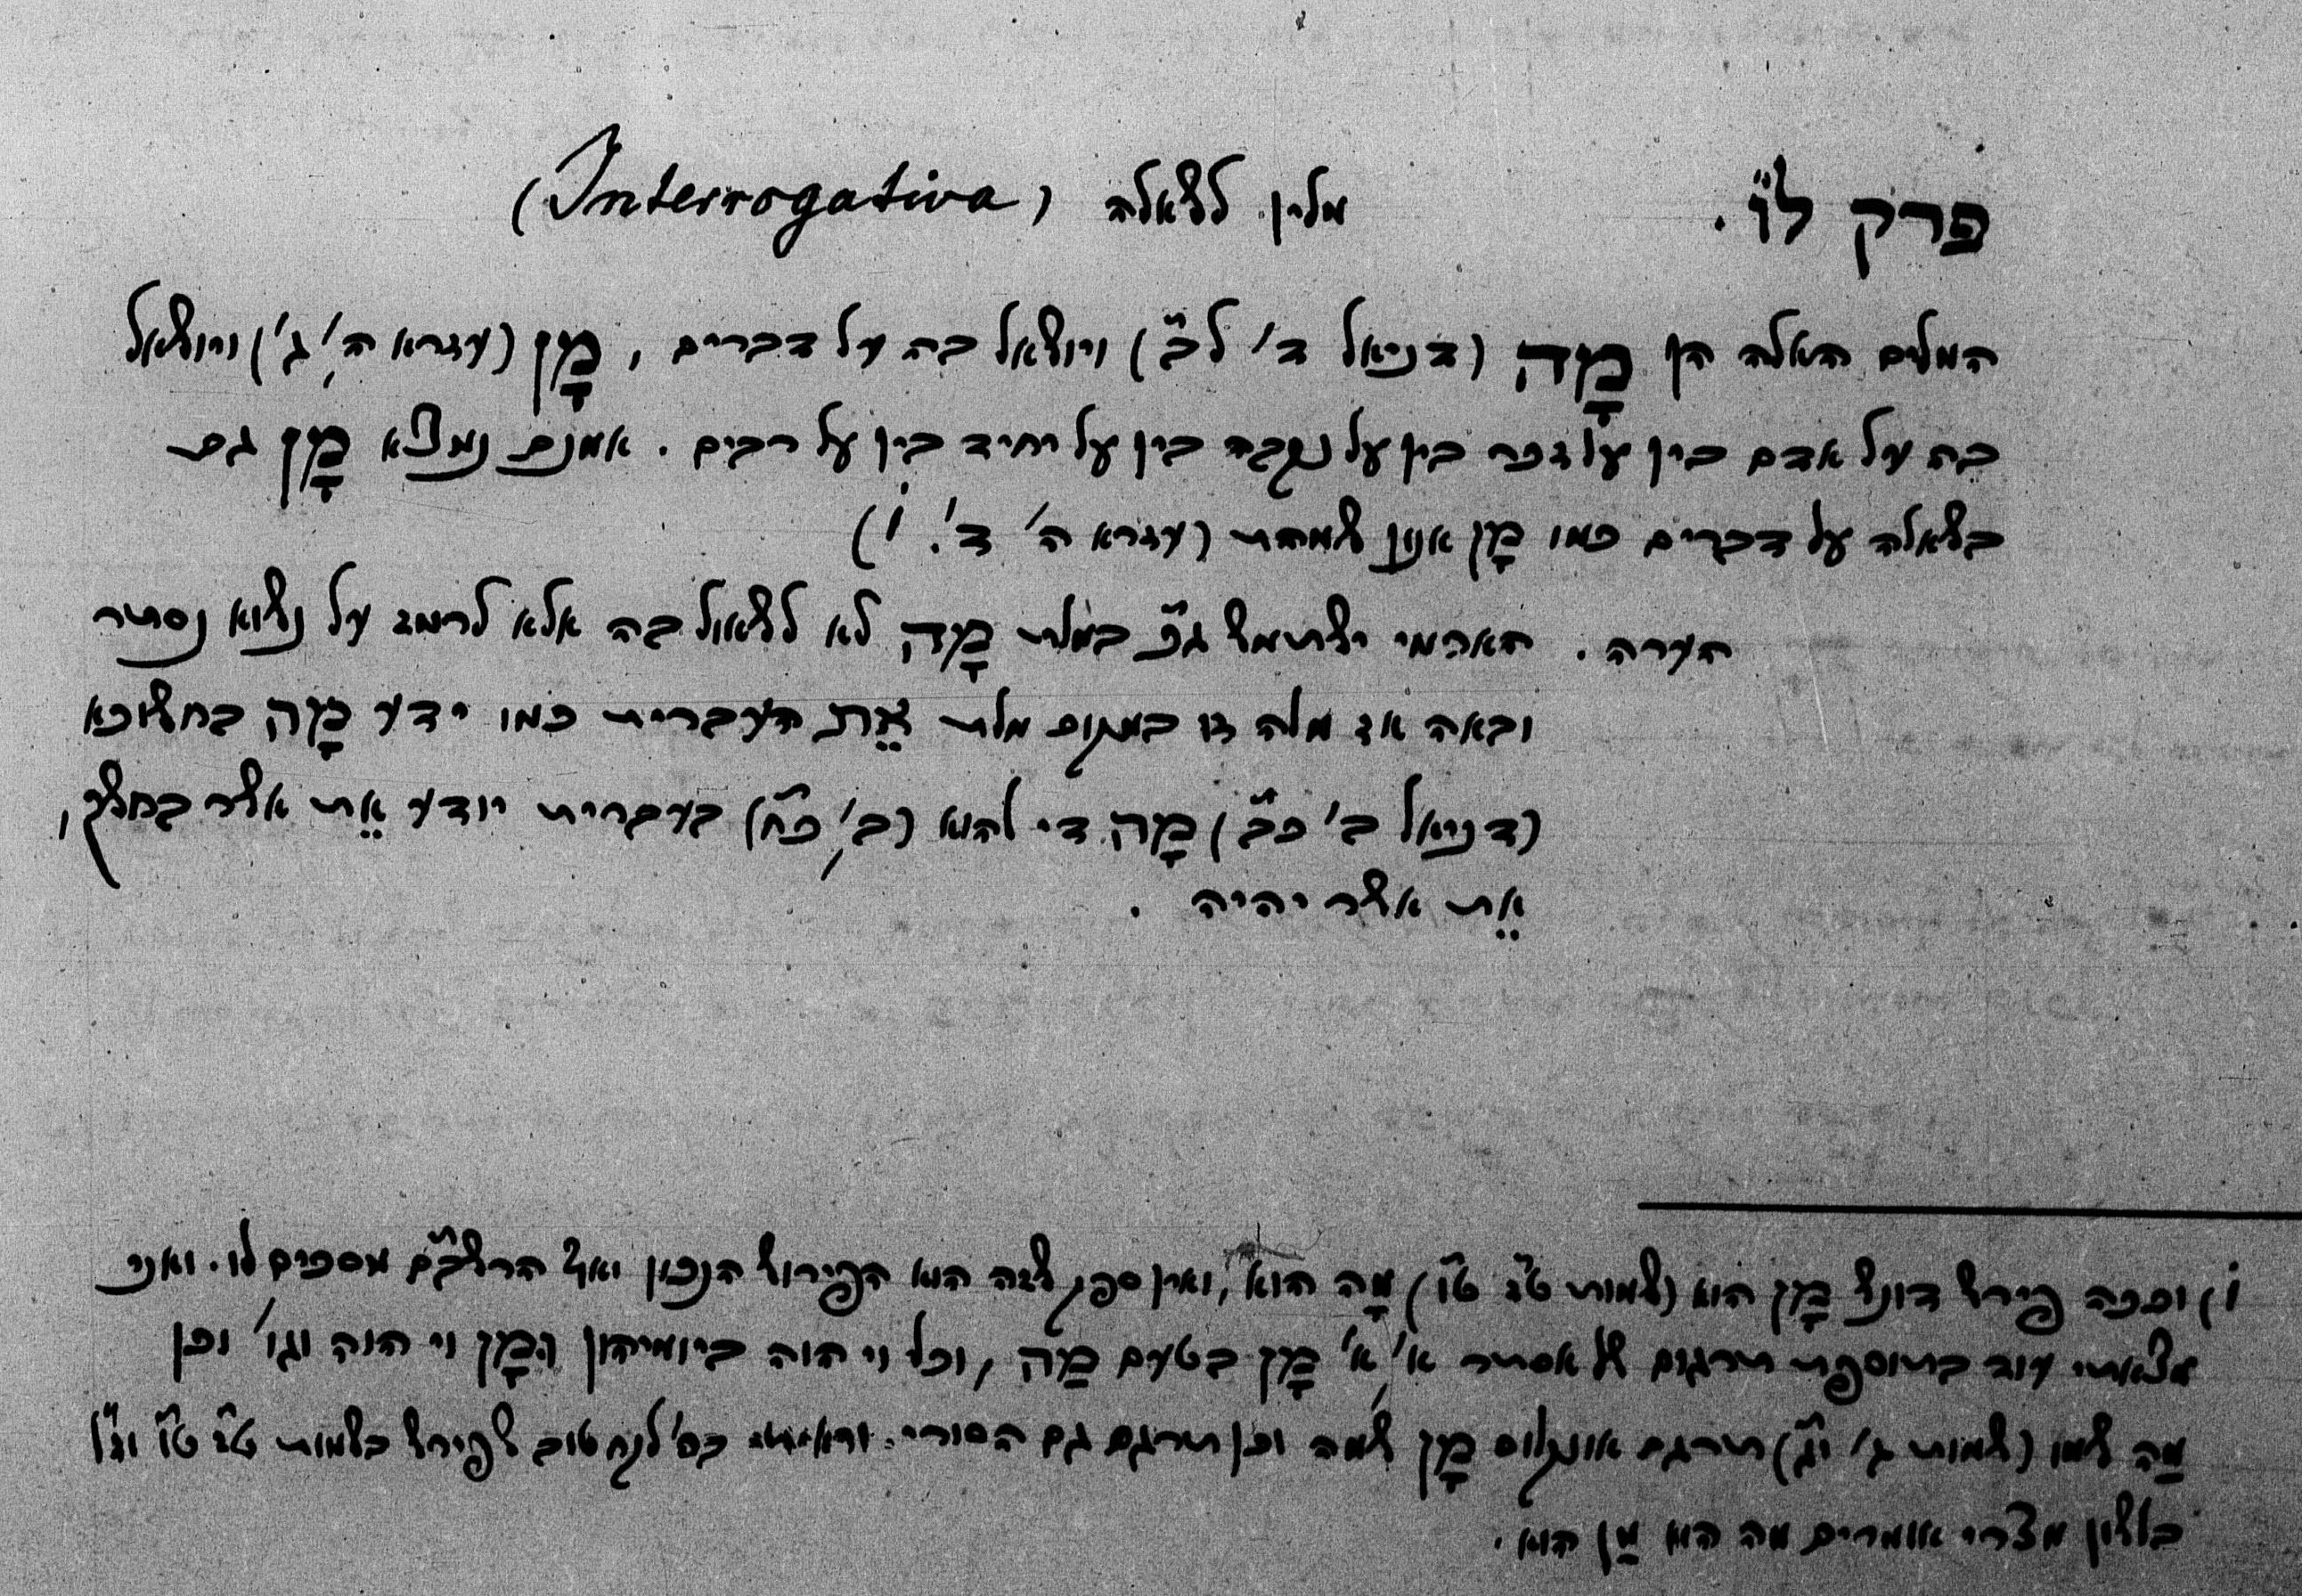 פרק ל״ו. מלין לשאלה (Interrogativa)
המלים האלה הן מָה (דניאל ד׳ לב״) וישאל בה על דברים, מָן (עזרא ה׳, ג׳) וישאל
בה על אדם בין על זכר בין על נקבה בין על יחיד בין על רבים. אמנם נמצא מָן גם
בשאלה על דברים כמו מָן אנון שמהת (עזרא ה׳ ד׳. 1)
הערה. הארמי ישתמש ג״כ במלת מָה לא לשאול בה אלא לרמז על נשוא נסתר
ובאה אז מלה זו במקום מלת אֵת העברית כמו ידע מָה בחשוכא
(דניאל ב׳ כב״) מָה די להוא (ב׳, כח״) בעברית יודע אֵת אשר בחשך,
אֵת אשר יהיה.
1) וככה פירש דונש מָן הוא (שמות ט״ז ט״ו) מָה הוא, ואין ספק שזה הוא הפירוש הנכון ואף הרשב״ם מסכים לו. ואני
מצאתי עוד בתוספת תרגום של אסתר א׳, א׳ מָן בטעם מַה, וכל וי הוה ביומיהון המָן וי הוה וגו׳ וכן
מַה שמו (שמות ג׳ י״ג) תרגם אונקלוס מָן שמה וכן תרגם גם הסורי. וראיתי בס׳ לקח טוב שפירש בשמות ט״ז ט״ו וז״ל
בלשון מצרי אומרים מה הוא מַן הוא.